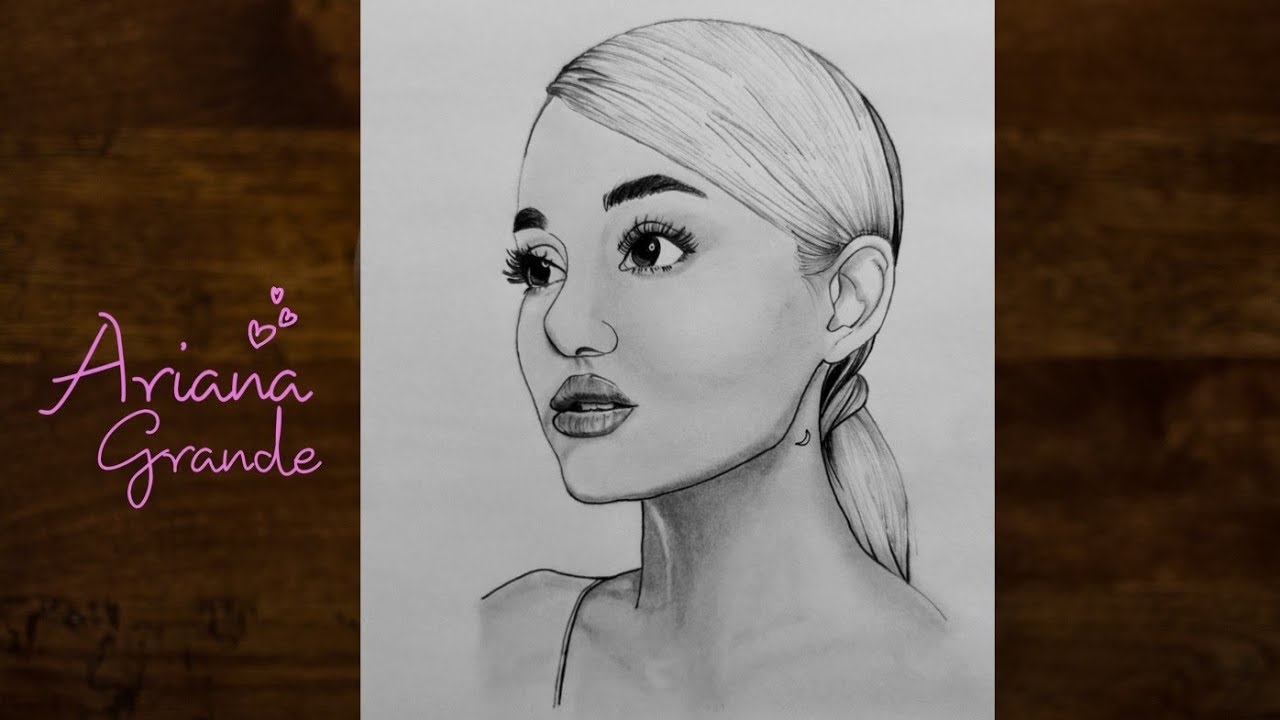 Ariana
Grande